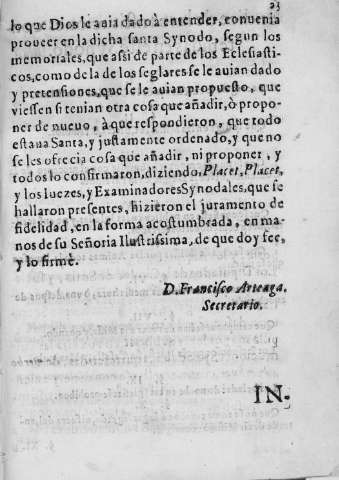 23
lo que Dios le auia dado à entender, conuenia
proueer en la dicha santa Synodo, segun los
memoriales, que assi de parte de los Eclesiasti-
cos, como de la de los seglares se le auian dado
y pretensiones, que se le auian propuesto, que
viessen si tenian otra cosa que añadir, ò propo-
ner de nueuo, à que respondieron, que todo
estaua Santa, y justamente ordenado, y que no
se les ofrecia cosa que añadir, ni proponer, y
todos lo confirmaron, diziendo, Placet, Placet,
y los Iuezes, y Examinadores Synodales, que se
hallaron presentes, hizieron el juramento de
fidelidad, en la forma acostumbrada, en ma-
nos de su Señoria Ilustrissima, de que doy fee,
y lo firmè.
D. Francisco Arteaga.
Secretario.
IN-